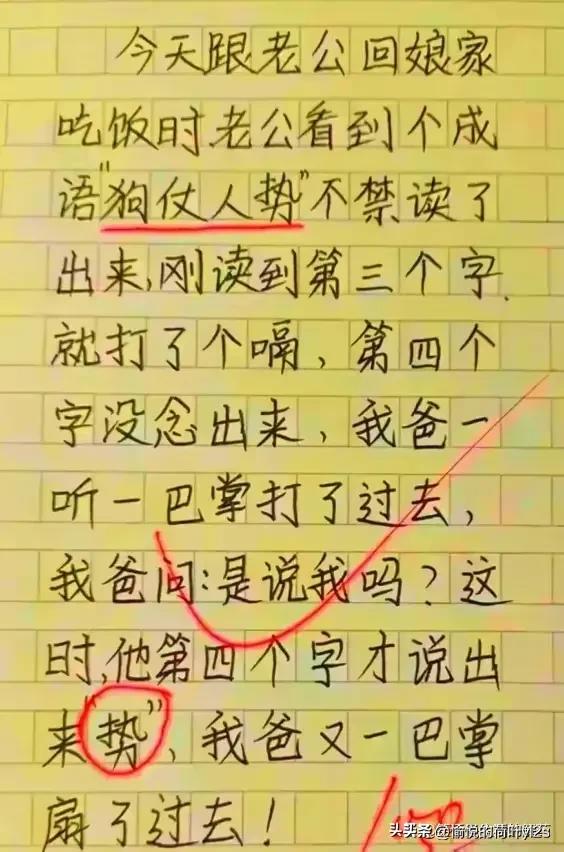 今天跟老公回娘家
吃饭时,老公看到个成
语"狗仗人势"不禁读了
出来,刚读到第三个字、
就打了个嗝、第四个
字没念出来，我爸一
听一巴掌打了过去，
我爸问:是说我吗？这
时,他第四个字才说出
来"势"，我爸又一巴掌
扇了过去！
头条 @愉悦的荷叶123